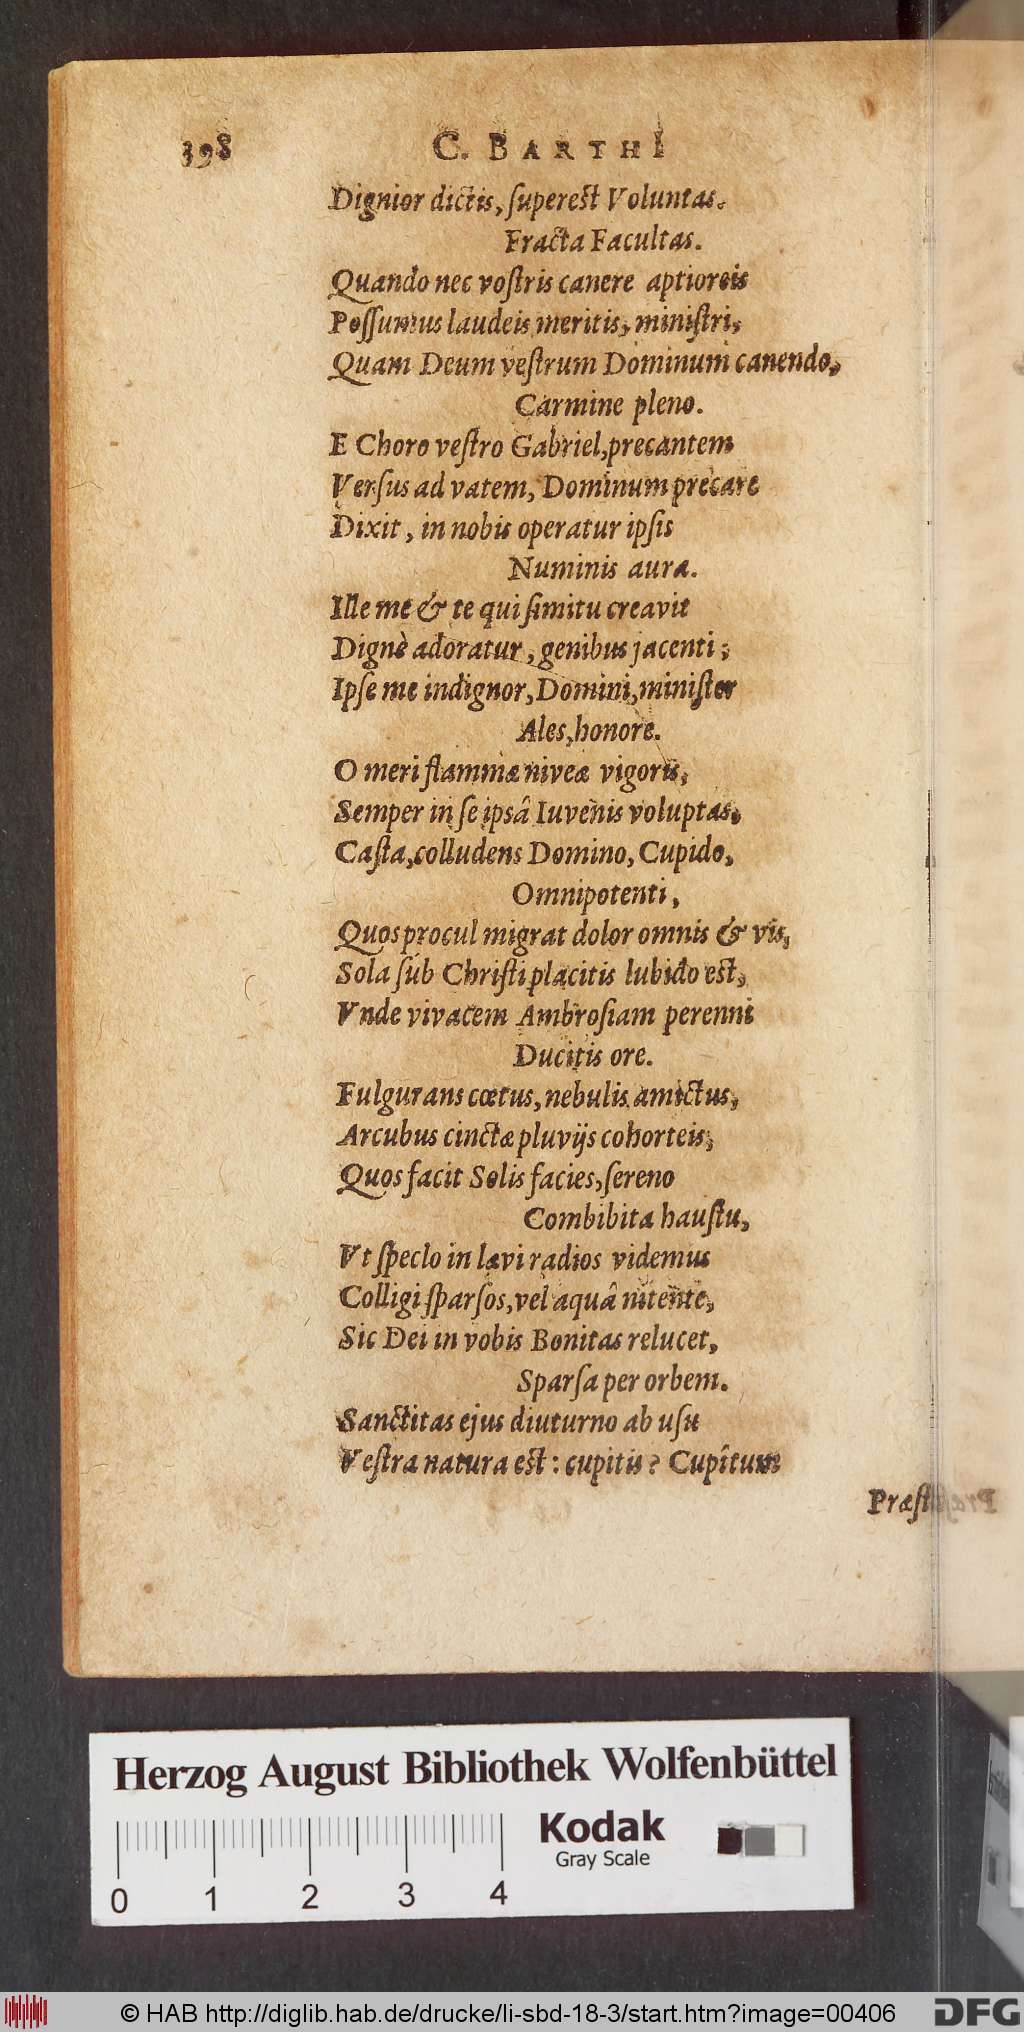 398 C. BARTHI
Dignior dictis, ſupereſt Voluntas.
Fracta Facultas.
Quando nec voſtris canere aptioreis
Poſſumus laudeis meritis, miniſtri,
Quam Deum veſtrum Dominum canendo,
Carmine pleno.
E Choro veſtro Gabriel, precantem
Verſus ad vatem, Dominum precare
Dixit, in nobis operatur ipſis
Numinis auræ.
Ille me & te qui ſimitu creavit
Dignè adoratur, genibus jacenti;
Ipſe me indignor, Domini, miniſter
Ales, honore.
O meri flammæ niveæ vigoris,
Semper in ſe ipsâ Iuvenis voluptas,
Caſta, colludens Domino, Cupido,
Omnipotenti,
Quos procul migrat dolor omnis & vis,
Sola ſub Chriſti placitis lubido eſt,
Vnde vivacem Ambroſiam perenni
Ducitis ore.
Fulgurans cœtus, nebulis amictus,
Arcubus cinctæ pluvijs cohorteis,
Quos facit Solis facies, ſereno
Combibita hauſtu,
Vt ſpeclo in lævi radios videmus
Colligi ſparſos, vel aquâ nitente,
Sic Dei in vobis Bonitas relucet,
Sparſa per orbem.
Sanctitas ejus diuturno ab uſu
Veſtra natura eſt: cupitis? Cupîtum
Præſt
Herzog August Bibliothek Wolfenbüttel
Kodak
Gray Scale
0 1 2 3 4
© HAB http://diglib.hab.de/drucke/li-sbd-18-3/start.htm?image=00406
DFG